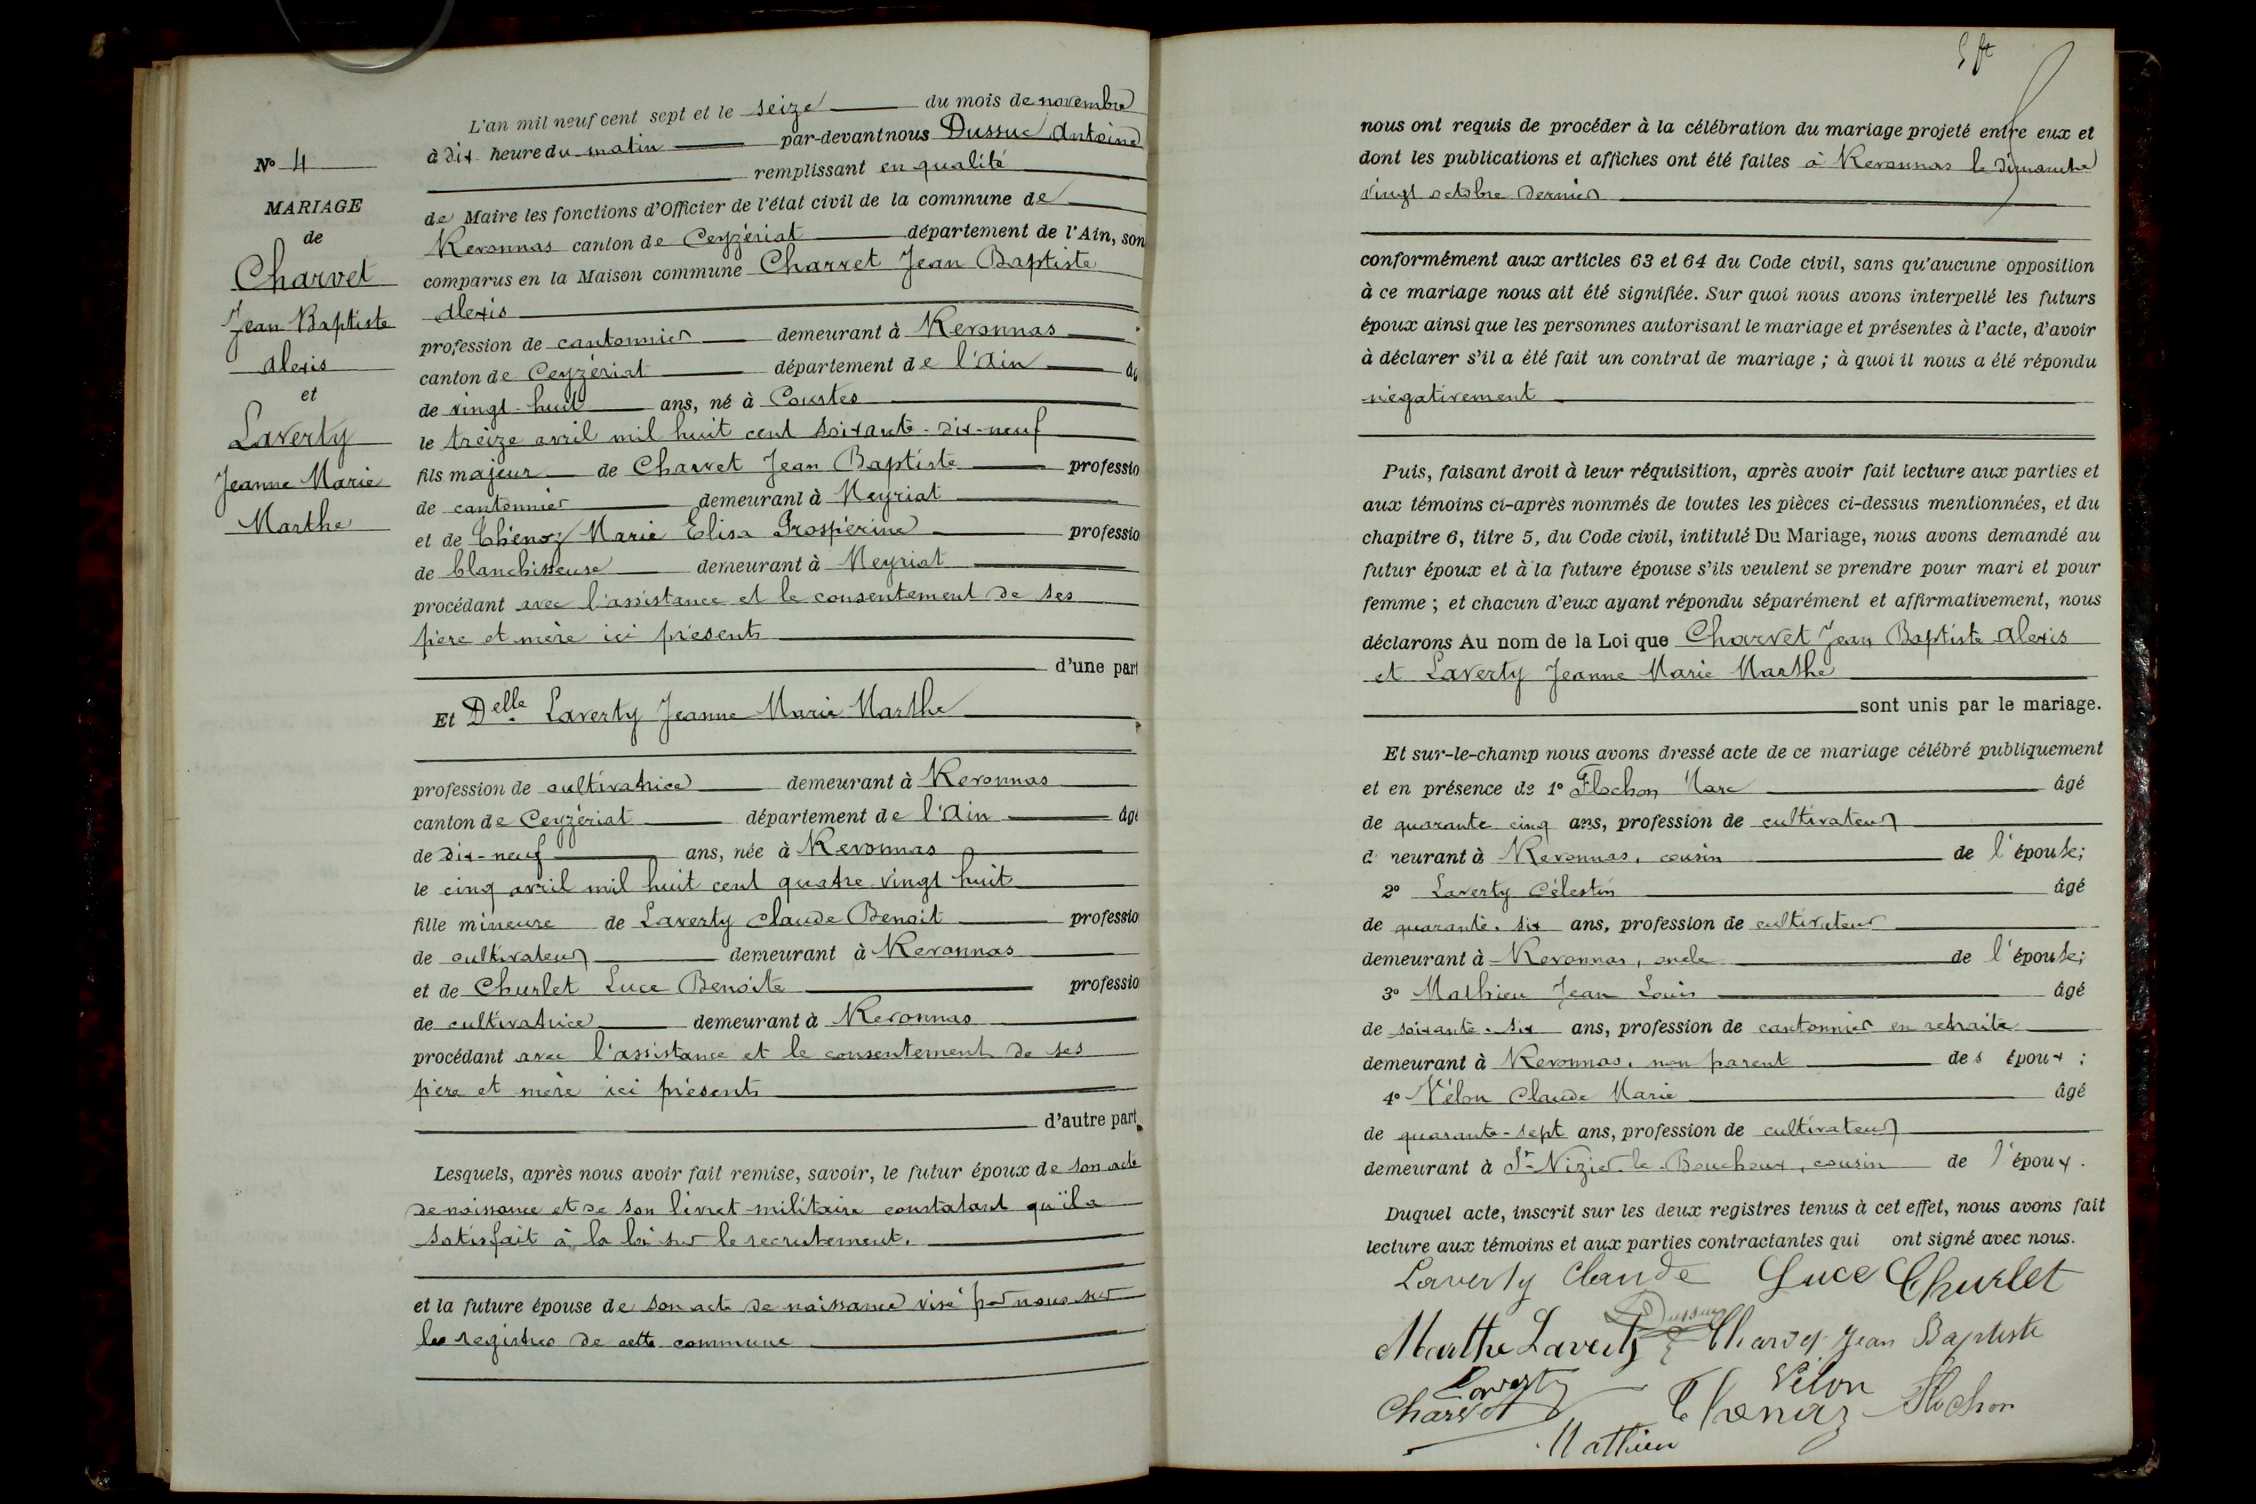 N° 4
MARIAGE
de
Charvet
Jean Baptiste
Alexis
et
Laverty
Jeanne Marie
Marthe
L'an mil neuf cent sept et le seize du mois de novembre
à dix heure du matin par-devant nous Dussuc Antoine
remplissant en qualité
de Maire les fonctions d'Officier de l'état civil de la commune de
Revonnas canton de Ceyzériat département de l'Ain, son
comparus en la Maison commune Charvet Jean Baptiste
Alexis
profession de cantonnier demeurant à Revonnas
canton de Ceyzériat département de l'Ain
de vingt-huit ans, né à Courtes
le treize avril mil huit cent soixante-dix-neuf
fils majeur de Charvet Jean Baptiste professio
de cantonnier demeurant à Meyriat
et de Thénoz Marie Elisa Prospérine professio
de blanchisseuse demeurant à Meyriat
procédant avec l'assistance et le consentement de ses
père et mère ici présents
d'une part
Et Delle Laverty Jeanne Marie Marthe
profession de cultivatrice demeurant à Revonnas
canton de Ceyzériat département de l'Ain âgé
de dix-neuf ans, née à Revonnas
le cinq avril mil huit cent quatre vingt huit
fille mineure de Laverty Claude Benoit professio
de cultivateur demeurant à Revonnas
et de Churlet Luce Benoîte professio
de cultivatrice demeurant à Revonnas
procédant avec l'assistance et le consentement de ses
père et mère ici présents
d'autre part.
Lesquels, après nous avoir fait remise, savoir, le futur époux de son acte
de naissance et de son livret militaire constatant qu'il a
satisfait à la loi sur le recrutement.
et la future épouse de son acte de naissance visé par nous sur
les registres de cette commune
nous ont requis de procéder à la célébration du mariage projeté entre eux et
dont les publications et affiches ont été faites à Revonnas le dimanche
vingt octobre dernier
conformément aux articles 63 et 64 du Code civil, sans qu'aucune opposition
à ce mariage nous ait été signifiée. Sur quoi nous avons interpellé les futurs
époux ainsi que les personnes autorisant le mariage et présentes à l'acte, d'avoir
à déclarer s'il a été fait un contrat de mariage ; à quoi il nous a été répondu
négativement
Puis, faisant droit à leur réquisition, après avoir fait lecture aux parties et
aux témoins ci-après nommés de toutes les pièces ci-dessus mentionnées, et du
chapitre 6, titre 5, du Code civil, intitulé Du Mariage, nous avons demandé au
futur époux et à la future épouse s'ils veulent se prendre pour mari et pour
femme ; et chacun d'eux ayant répondu séparément et affirmativement, nous
déclarons Au nom de la Loi que Charvet Jean Baptiste Alexis
et Laverty Jeanne Marie Marthe
sont unis par le mariage.
Et sur-le-champ nous avons dressé acte de ce mariage célébré publiquement
et en présence de 1° Flochon Marc âgé
de quarante cinq ans, profession de cultivateur
d neurant à Revonnas, cousin de l'épouse;
2° Laverty Célestin âgé
de quarante-six ans, profession de cultivateur
demeurant à Revonnas, oncle de l'épouse;
3° Mathieu Jean Louis âgé
de soixante-six ans, profession de cantonnier en retraite
demeurant à Revonnas, non parent des époux ;
4° Vélon Claude Marie âgé
de quarante-sept ans, profession de cultivateur
demeurant à St-Nizier-le-Bouchoux, cousin de l'époux.
Duquel acte, inscrit sur les deux registres tenus à cet effet, nous avons fait
lecture aux témoins et aux parties contractantes qui ont signé avec nous.
Laverty Claude Luce Churlet
Dussuc
Marthe Laverty Charvet Jean Baptiste
Laverty Vélon
Charvet Thenoz Flochon
Mathieu